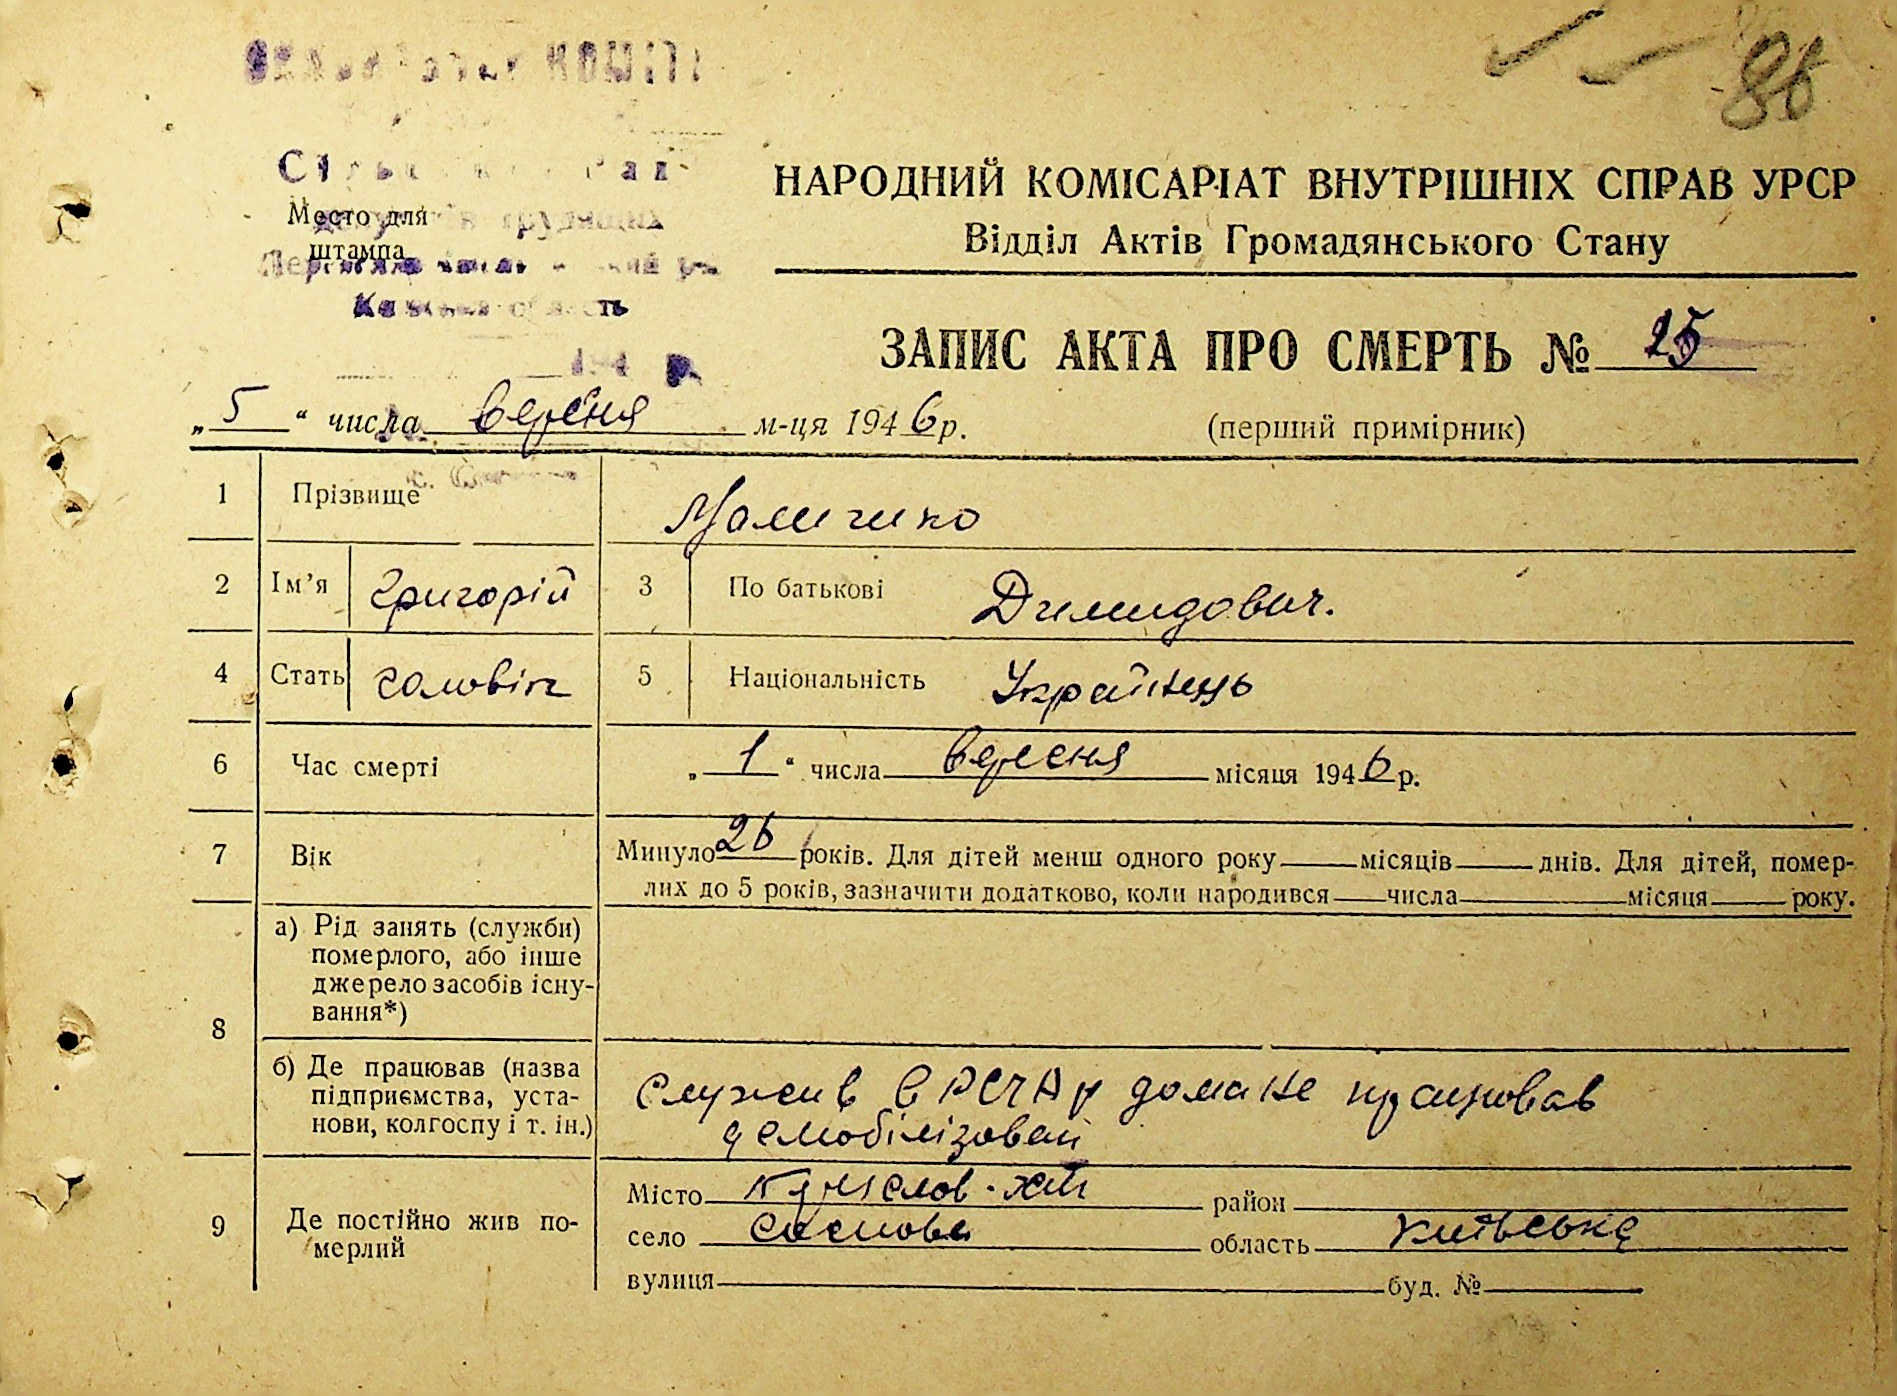 86
Место для
штампа
НАРОДНИЙ КОМІСАРІАТ ВНУТРІШНІХ СПРАВ УРСР
Відділ Актів Громадянського Стану
ЗАПИС АКТА ПРО СМЕРТЬ № 25
„ 5 “ числа вересня м-ця 1946 р.
(перший примірник)
1 Прізвище
2 Ім’я Григорій 3 По батькові Димидович.
4 Стать чоловіч 5 Національність Українець
6 Час смерті „ 1 “ числа вересня місяця 1946 р.
7 Вік Минуло 26 років. Для дітей менш одного року місяців днів. Для дітей, помер-
лих до 5 років, зазначити додатково, коли народився числа місяця року.
8 а) Рід занять (служби)
померлого, або інше
джерело засобів існу-
вання*)
б) Де працював (назва
підприємства, уста-
нови, колгоспу і т. ін.)
Служив в РСЧА дома не працював
демобілізован
9 Де постійно жив по-
мерлий
Місто район
село Соснова область Київська
вулиця буд. №